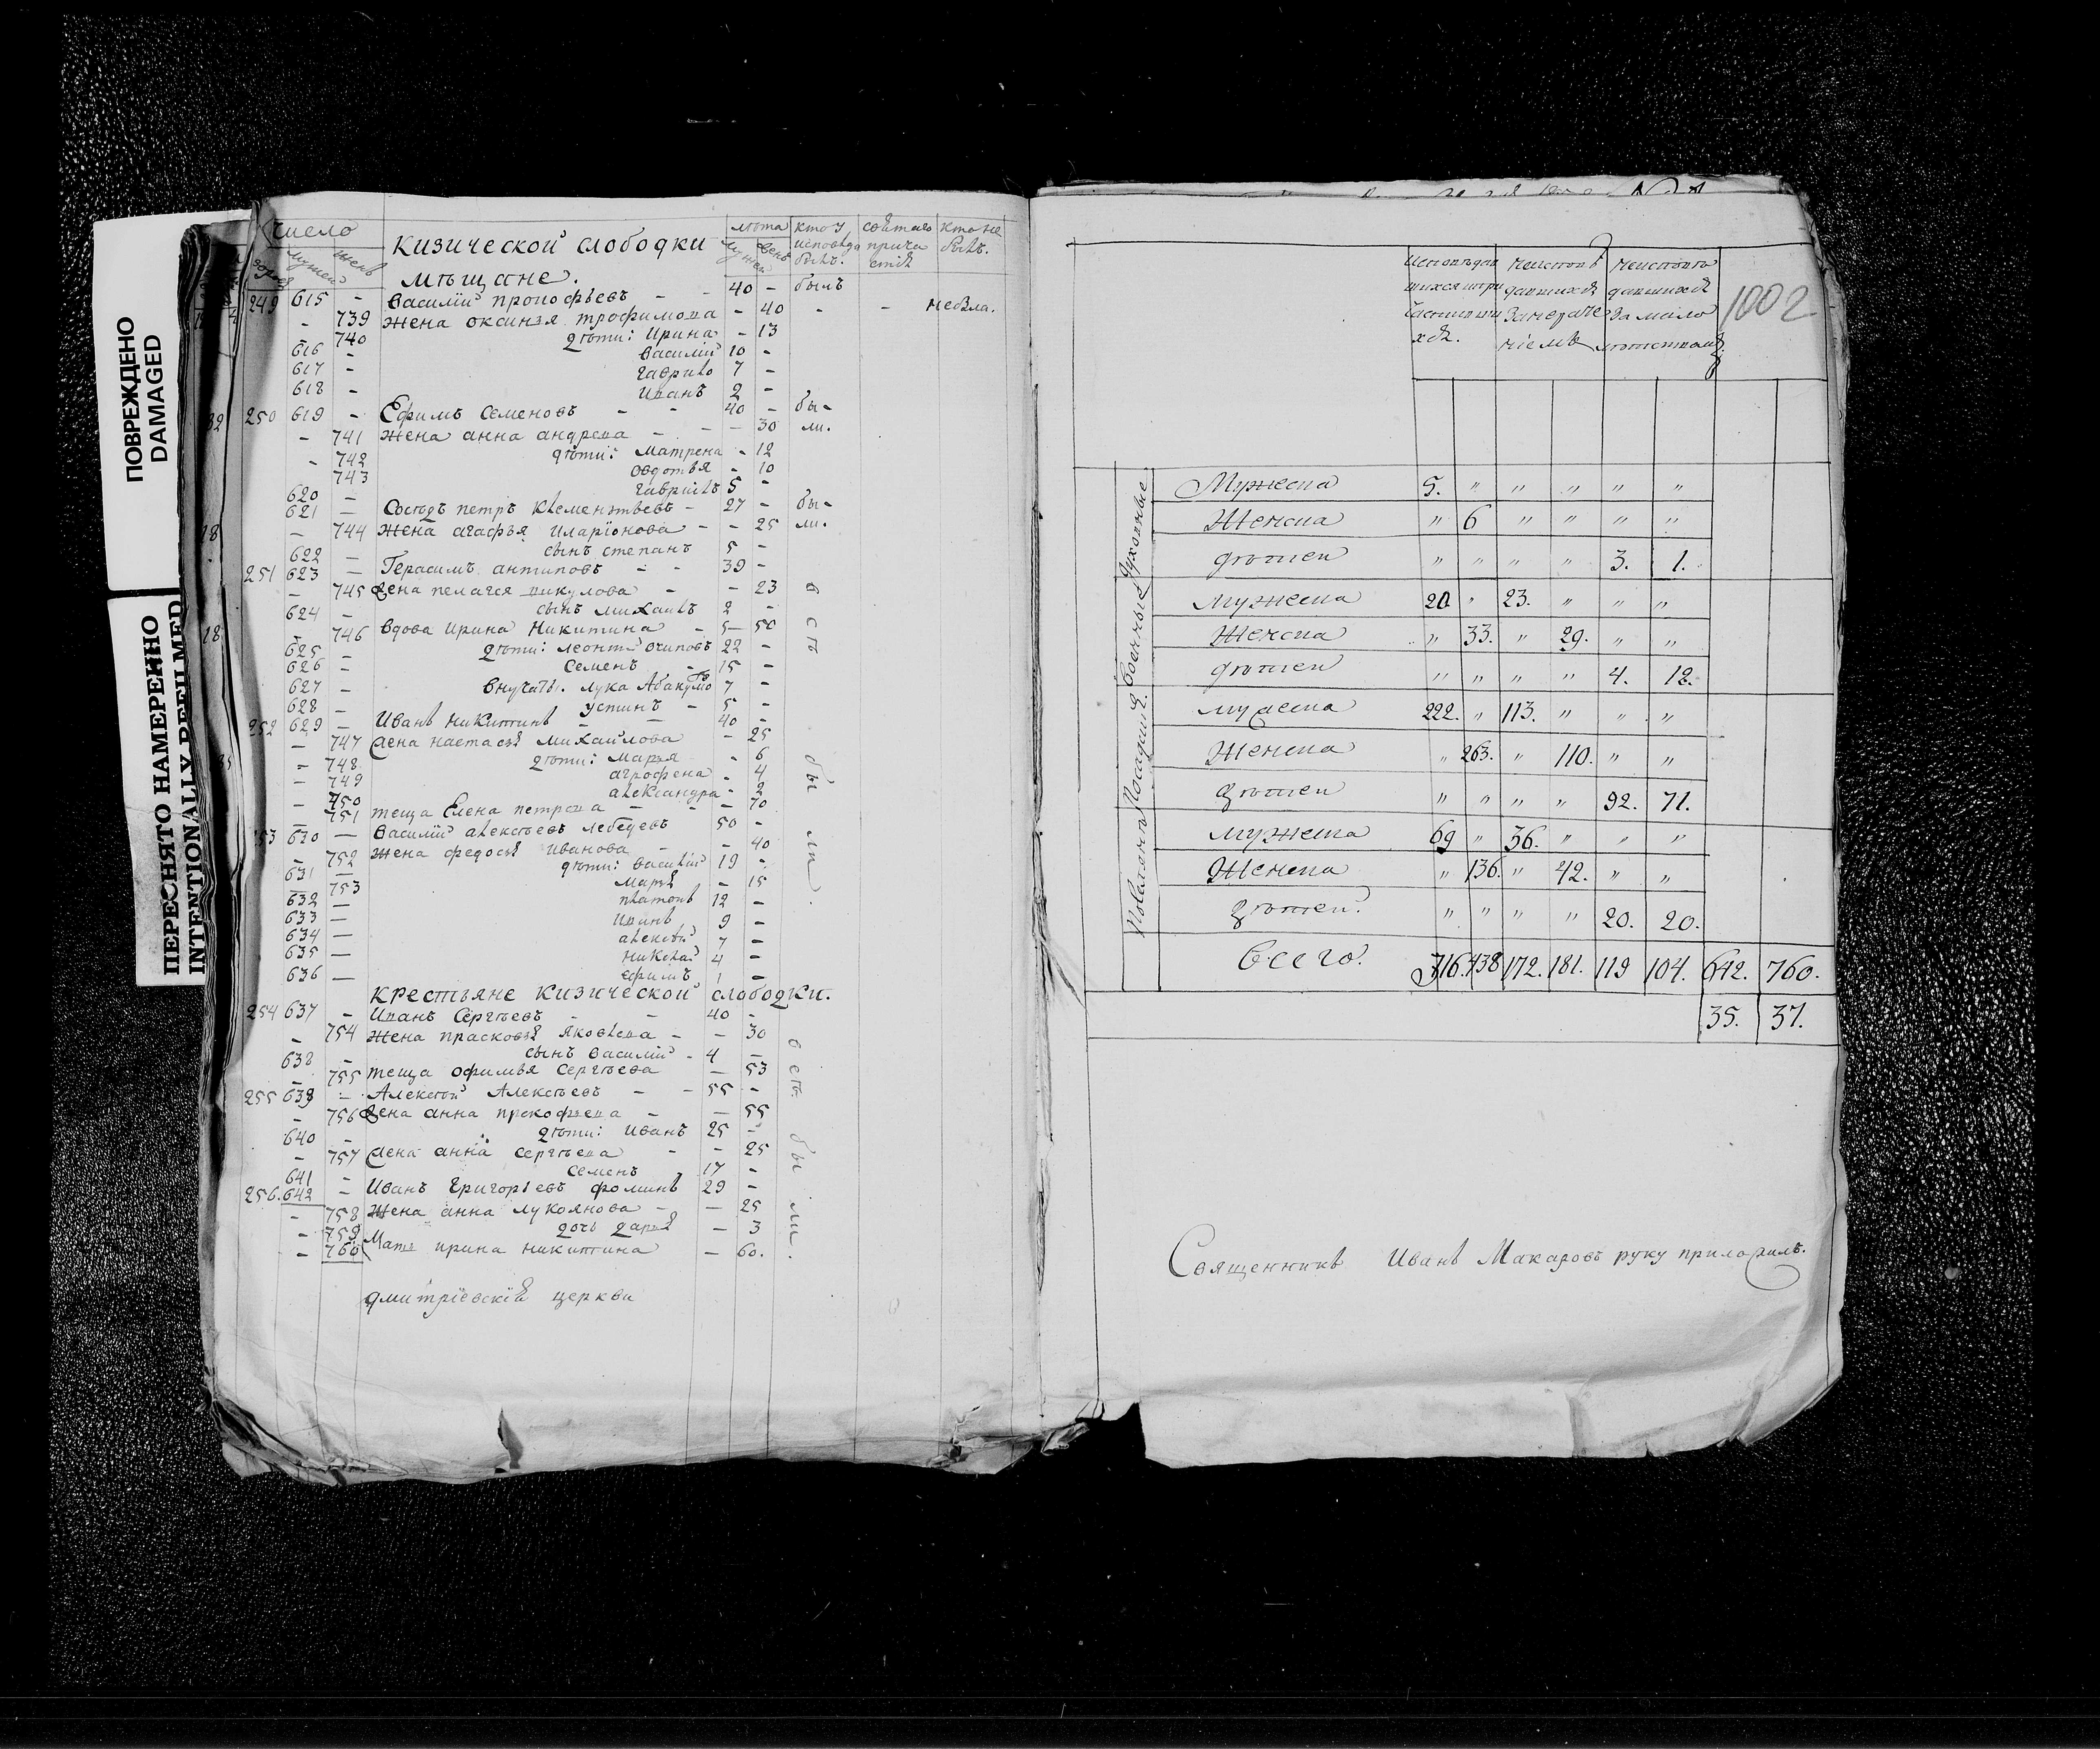 ПОВРЕЖДЕНО
DAMAGED
ПЕРЕСНЯТО НАМЕРЕННО
INTENTIONALLY REFILMED
Число
дворов
мужей
женъ
Кизической слободки
мѣщане.
лѣта
мужей
женъ
кто у исповѣди былъ.
святаго причастія
кто не былъ.
249 615 - Василiй прокофьевъ - - 40 - былъ
- 739 жена оксинья трофимова - 40 - - не была.
- 740 дѣти: Ирина - 13
616 - Василiй 10 -
617 - гаврило 7 -
618 - Иванъ 2 -
250 619 - Ефимъ Семеновъ - - 40 - бы-
- 741 жена анна андрева - - - 30 ли.
- 742 дѣти: матрена - 12
743 овдотья - 10
620 - гаврилъ 5 -
621 - Сосѣдъ петръ Клементьевъ - 27 - бы-
- 744 жена агафья иларiонова - - 25 ли.
622 сынъ степанъ 5 -
251 623 - Герасимъ антиповъ - - 39 -
- 745 жена пелагея никулова - - 23
624 - сынъ михаилъ 2 -
- 746 вдова ирина Никитина - 50
625 - дѣти: леонтѣ 22 -
626 - Семенъ - 15 -
627 - внучаты. лука Абакумо 7 -
628 - устинъ - 5 -
252 629 - Иванъ никитинъ - - 40 -
- 747 жена настасья михаилова - 25
- 748 дѣти: марья - 6
- 749 агрофена - 4
- 750 александра - 2
- 751 теща Елена петрова - - - 70
253 630 - Василiй алексѣевъ лебедевъ 50 -
- 752 жена федосья иванова - - 40
631 - дѣти: василiй 19 -
753 марья - 15
632 - платонъ 12 -
633 - иванъ 9 -
634 - алексѣй 7 -
635 - николай 4 -
636 - ефимъ 1 -
всѣ были.
крестьяне кизической слободки.
254 637 - Иванъ Сергѣевъ - - 40 -
- 754 жена прасковья яковлева - - 30
638 - сынъ василiй - 4 -
- 755 теща офимья Сергѣева - 53
255 639 - Алексѣй Алексѣевъ - - 55 -
- 756 жена анна прокофьева - - 55
640 - дѣти: иванъ 25 -
- 757 жена анна сергѣева - - 25
641 - семенъ 17 -
256. 642 - Иванъ григорьевъ фоминъ 29 -
- 758 жена анна лукоянова - - 25
- 759 дочь дарья - 3
- 760 Мать ирина никитина - 60.
всѣ были.
дмитрiевскiя церкви
Исповѣдавшихся и причастившихся.
Неисповѣдавшихся за нерачениемъ
Неисповѣдавшихся за малолѣтствомъ
1002
Духовные
Мужеска 5. " " " " "
Женска " 6 " " " "
дѣтей " " " " 3. 1.
Военные
мужеска 20 " 23. " " "
Женска " 33. " 29. " "
дѣтей " " " " 4. 12.
Посадцкiя.
мужеска 222. " 113. " " "
Женска " 263. " 110. " "
дѣтей " " " " 92. 71.
мужеска 69 " 36. " " "
Женска " 136. " 42. " "
дѣтей. " " " " 20. 20.
Всего. 316. 438 172. 181. 119 104. 642. 760.
35. 37.
Священникъ Иванъ Макаровъ руку приложилъ.